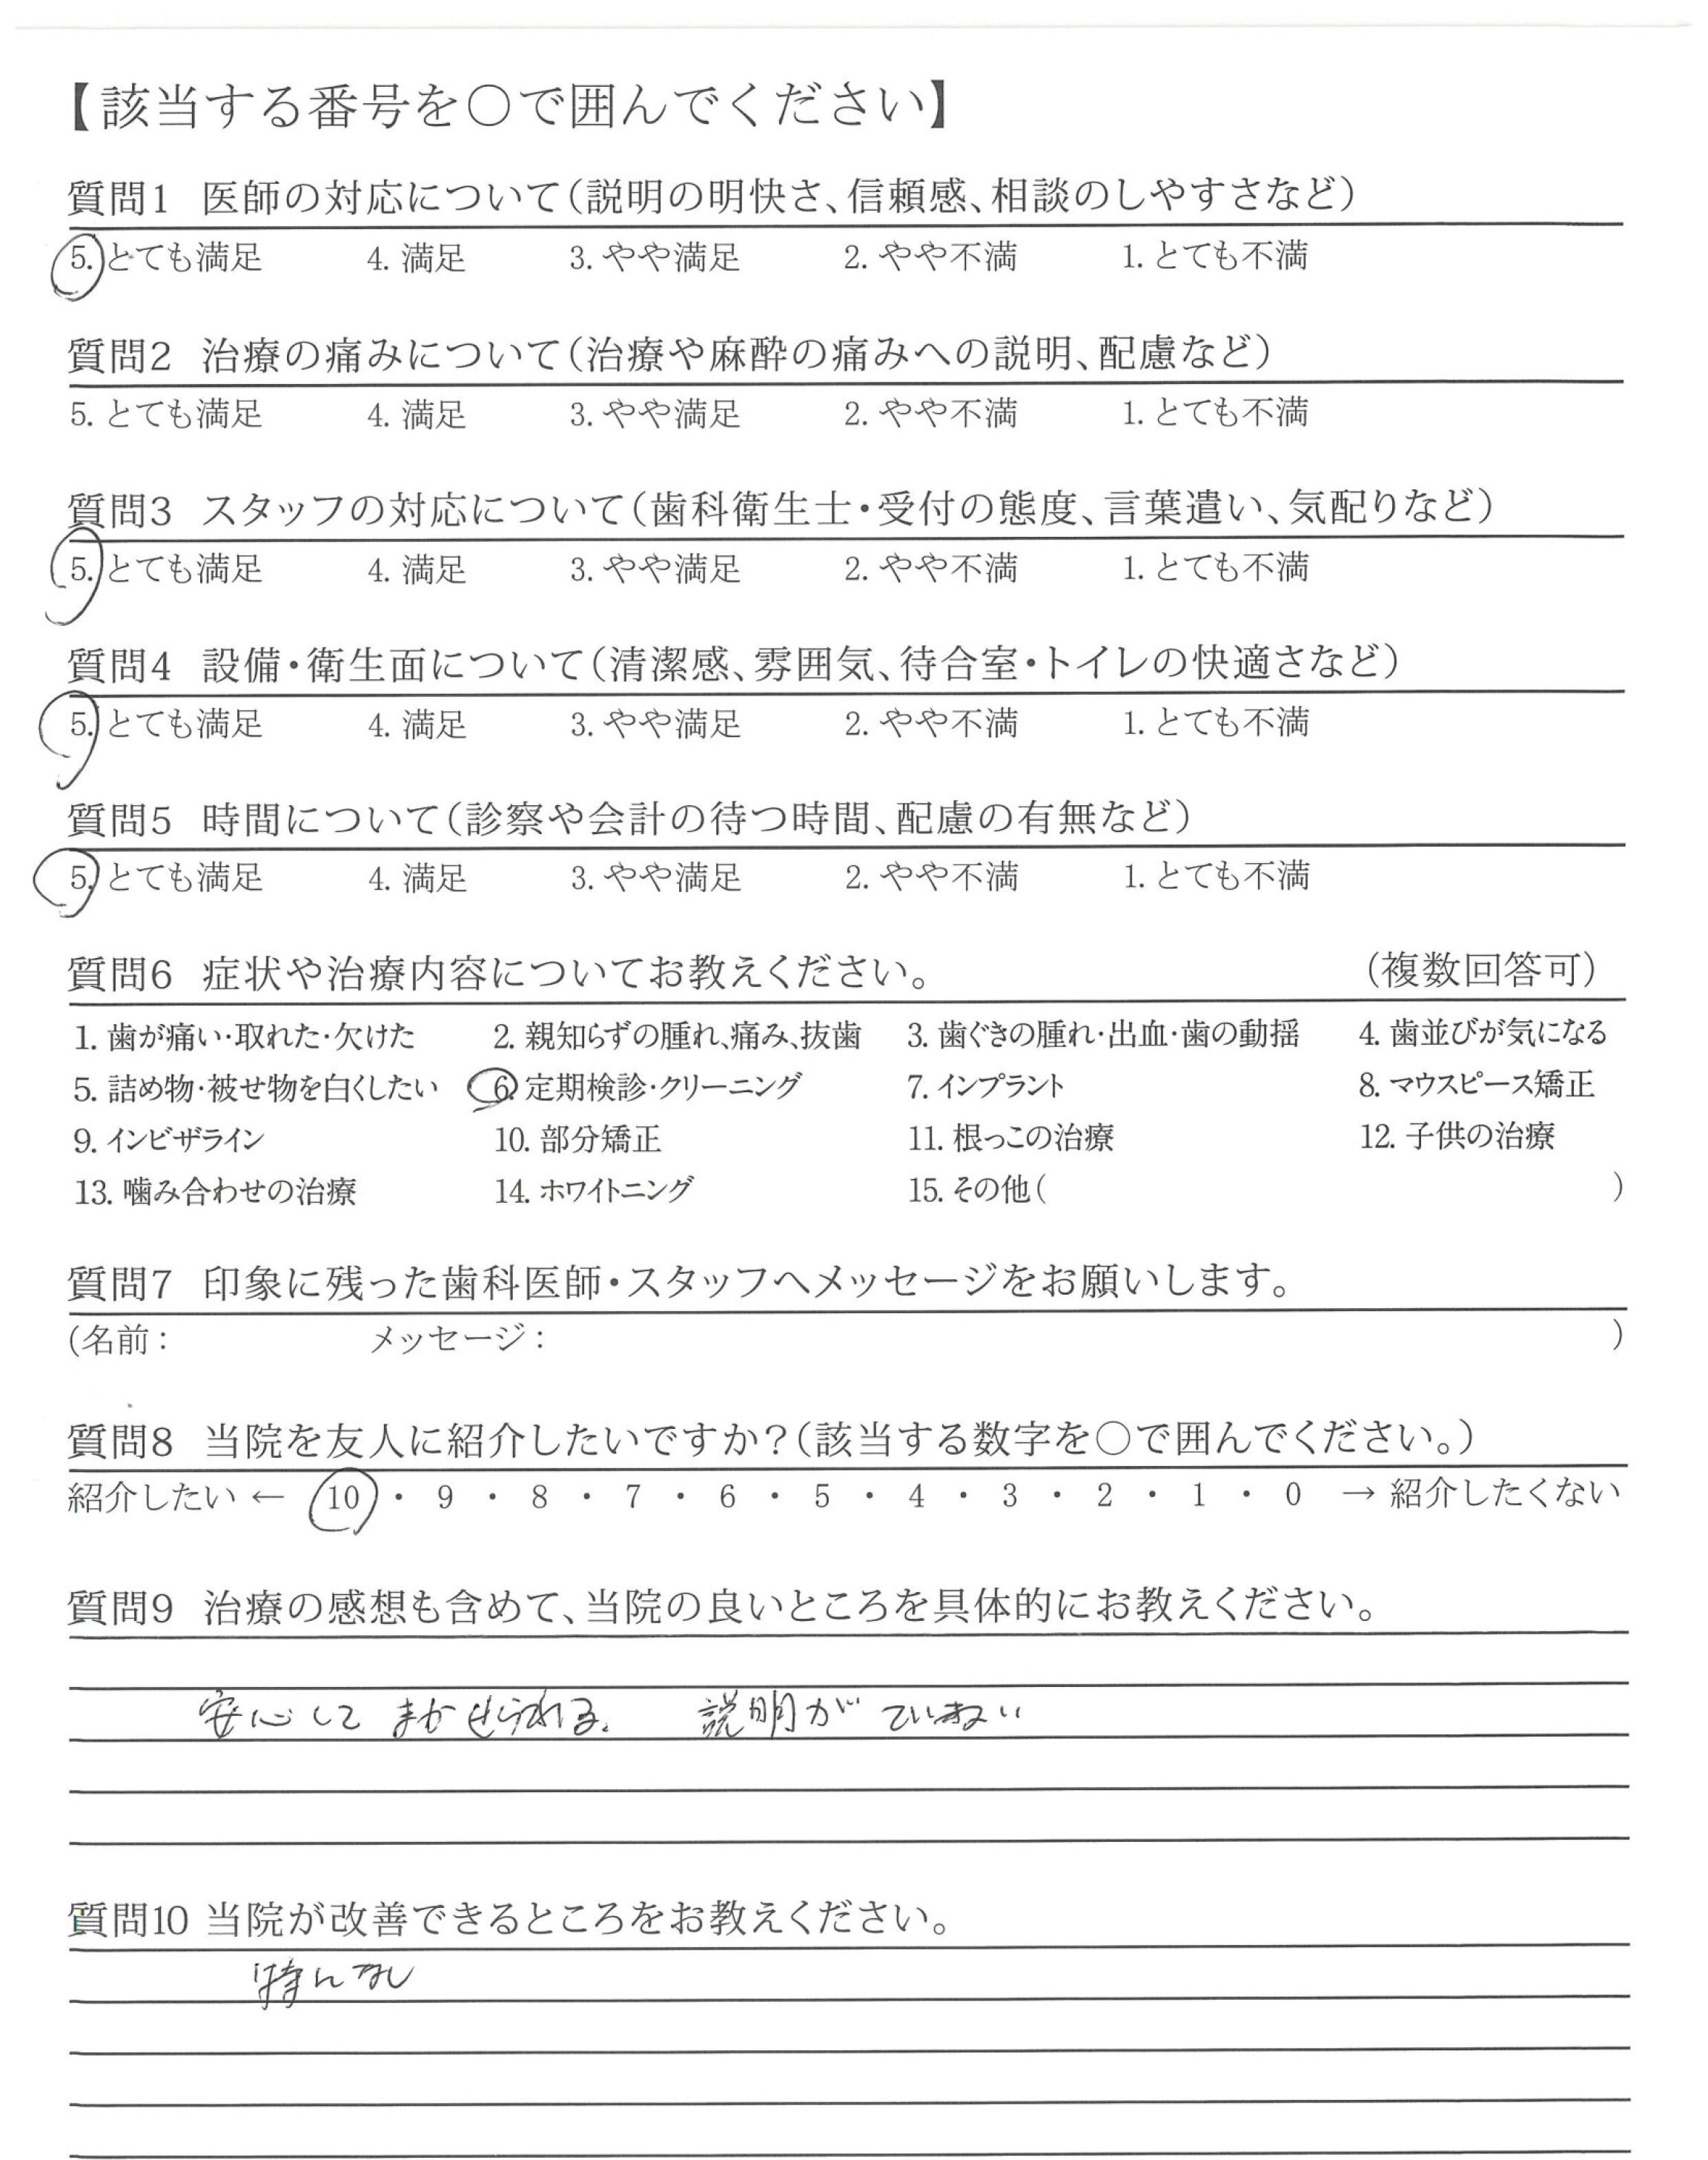 【該当する番号を○で囲んでください】
質問1 医師の対応について(説明の明快さ、信頼感、相談のしやすさなど)
5. とても満足 4. 満足 3. やや満足 2. やや不満 1. とても不満
質問2 治療の痛みについて(治療や麻酔の痛みへの説明、配慮など)
5. とても満足 4. 満足 3. やや満足 2. やや不満 1. とても不満
質問3 スタッフの対応について(歯科衛生士・受付の態度、言葉遣い、気配りなど)
5. とても満足 4. 満足 3. やや満足 2. やや不満 1. とても不満
質問4 設備・衛生面について(清潔感、雰囲気、待合室・トイレの快適さなど)
5. とても満足 4. 満足 3. やや満足 2. やや不満 1. とても不満
質問5 時間について(診察や会計の待つ時間、配慮の有無など)
5. とても満足 4. 満足 3. やや満足 2. やや不満 1. とても不満
質問6 症状や治療内容についてお教えください。 (複数回答可)
1. 歯が痛い・取れた・欠けた 2. 親知らずの腫れ、痛み、抜歯 3. 歯ぐきの腫れ・出血・歯の動揺 4. 歯並びが気になる
5. 詰め物・被せ物を白くしたい 6. 定期検診・クリーニング 7. インプラント 8. マウスピース矯正
9. インビザライン 10. 部分矯正 11. 根っこの治療 12. 子供の治療
13. 噛み合わせの治療 14. ホワイトニング 15. その他( )
質問7 印象に残った歯科医師・スタッフへメッセージをお願いします。
(名前: メッセージ: )
質問8 当院を友人に紹介したいですか?(該当する数字を○で囲んでください。)
紹介したい ← 10 ・ 9 ・ 8 ・ 7 ・ 6 ・ 5 ・ 4 ・ 3 ・ 2 ・ 1 ・ 0 → 紹介したくない
質問9 治療の感想も含めて、当院の良いところを具体的にお教えください。
安心して まかせられる。 説明が ていねい
質問10 当院が改善できるところをお教えください。
特になし